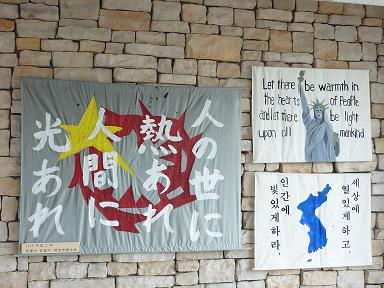 人の世に
熱あれ
人間に
光あれ
Let there be warmth in
the hearts of People
and let there be light
upon all mankind
세상에
열 있게 하고,
인간에
빛 있게 하라.